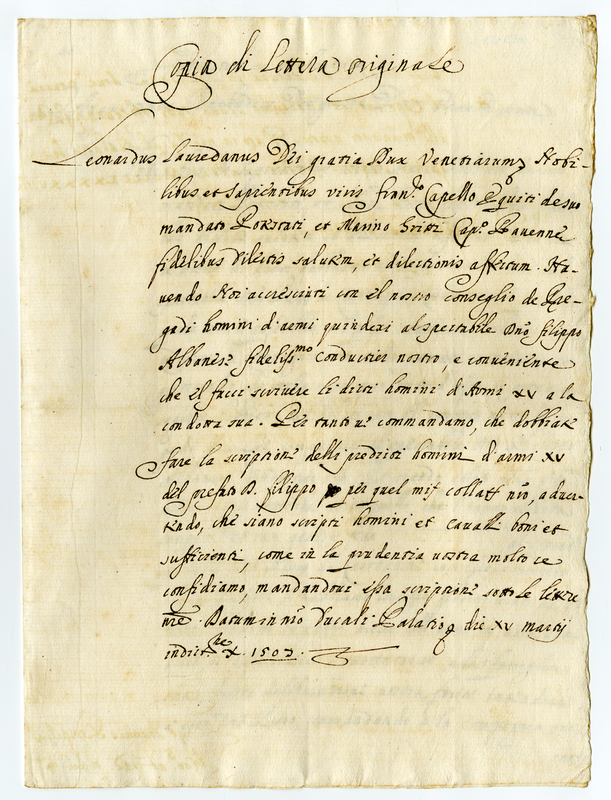 Copia di Lettera originale
Leonardus Lauredanus Dei gratia Dux Venetiarum Nobi-
libus et Sapientibus viris Fran.co Capello Equiti de suo
mandato Potestati, et Marino Gritti Cap.o Ravenne
fidelibus dilectis salutem, et dilectionis affectum. Ha-
vendo Noi accresciuti con el nostro conseglio de Pre-
gadi homini d'armi quindexi al spectabile Dno filippo
Albanese fideliss.mo conductier nostro, e conveniente
che el facci scrivere li dicti homini d'Armi XV a la
condotta sua. Per tanto ve commandamo, che dobbiate
fare la scriptione delli predicti homini d'armi XV
del prefato D. filippo, per quel mis collat nro, adver-
tendo, che siano scripti homini et cavalli boni et
sufficienti, come in la prudentia vostra molto ce
confidiamo, mandandovi essa scriptione sotto le lettere
vre. Datum in nro Ducali Palatio die XV martij
indict.ne X. 1507.